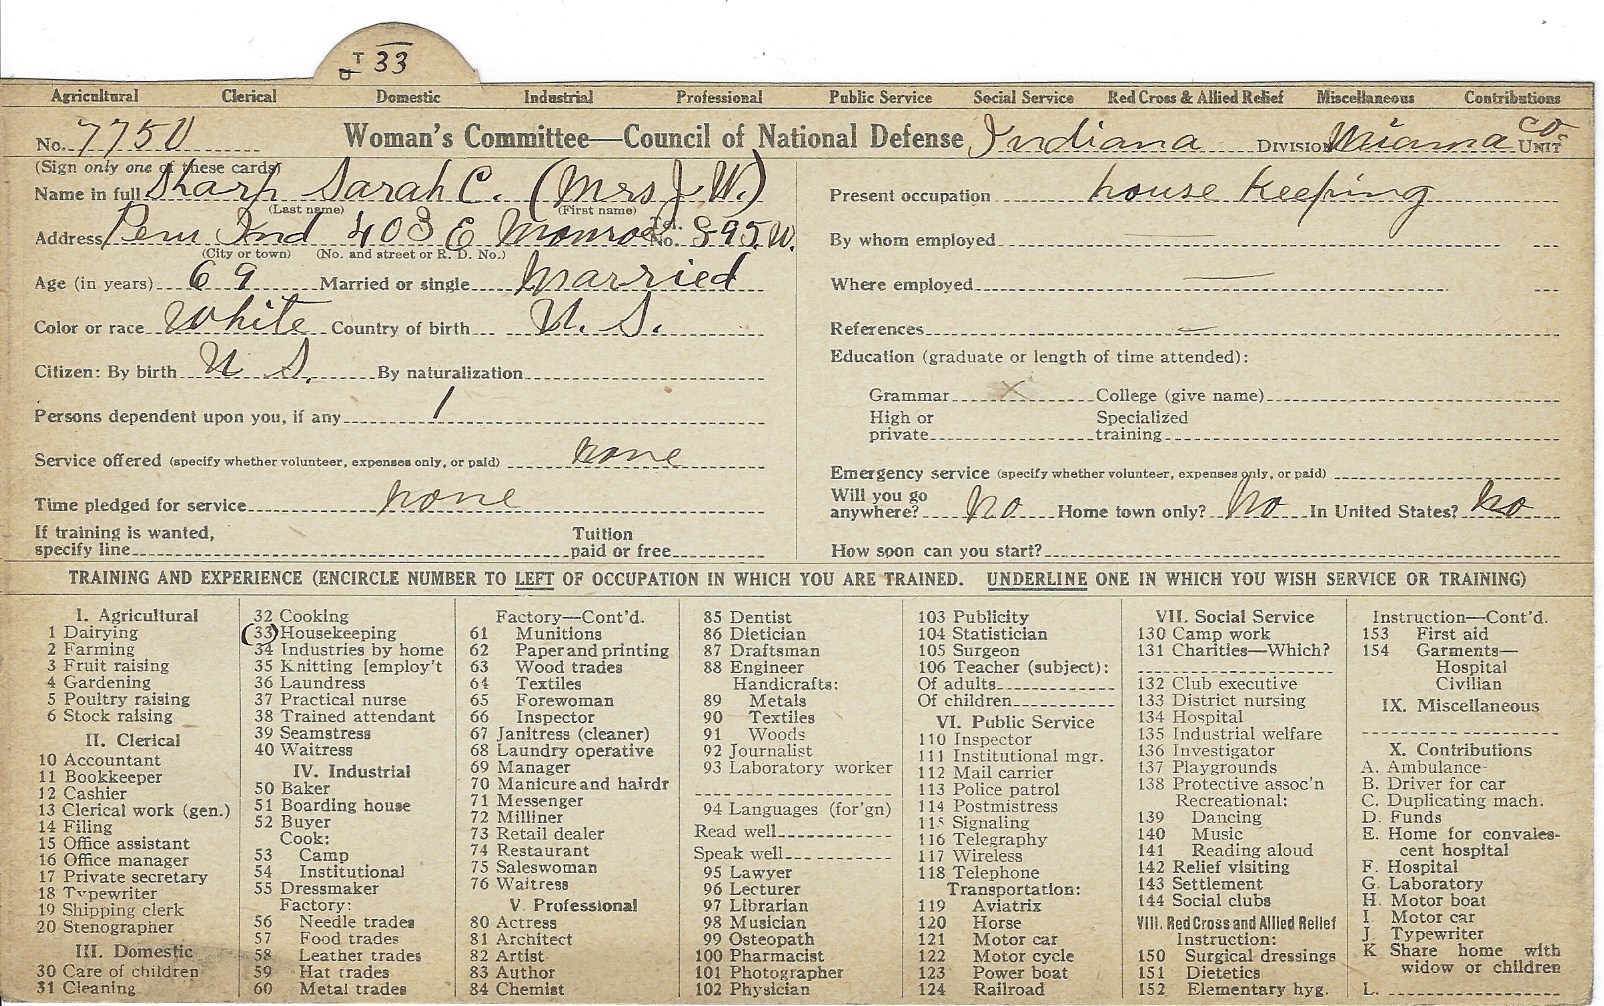 T 33
Agricultural Clerical Domestic Industrial Professional Public Service Social Service Red Cross & Allied Relief Miscellaneous Contributions
No. 7750 Woman's Committee—Council of National Defense Indiana DIVISION Miami Co. UNIT
(Sign only one of these cards)
Name in full Sharp Sarah C. (Mrs J. W.)
(Last name) (First name)
Address Peru Ind 403 E Monroe Tel. No. 895 W.
(City or town) (No. and street or R. D. No.)
Age (in years) 69 Married or single Married
Color or race White Country of birth U. S.
Citizen: By birth U S. By naturalization
Persons dependent upon you, if any 1
Service offered (specify whether volunteer, expenses only, or paid) none
Time pledged for service none
If training is wanted, specify line Tuition paid or free
Present occupation house keeping
By whom employed —
Where employed —
References —
Education (graduate or length of time attended):
Grammar X College (give name)
High or private Specialized training
Emergency service (specify whether volunteer, expenses only, or paid)
Will you go anywhere? no Home town only? no In United States? no
How soon can you start?
TRAINING AND EXPERIENCE (ENCIRCLE NUMBER TO LEFT OF OCCUPATION IN WHICH YOU ARE TRAINED. UNDERLINE ONE IN WHICH YOU WISH SERVICE OR TRAINING)
I. Agricultural
1 Dairying
2 Farming
3 Fruit raising
4 Gardening
5 Poultry raising
6 Stock raising
II. Clerical
10 Accountant
11 Bookkeeper
12 Cashier
13 Clerical work (gen.)
14 Filing
15 Office assistant
16 Office manager
17 Private secretary
18 Typewriter
19 Shipping clerk
20 Stenographer
III. Domestic
30 Care of children
31 Cleaning
32 Cooking
(33) Housekeeping
34 Industries by home
35 Knitting [employ't
36 Laundress
37 Practical nurse
38 Trained attendant
39 Seamstress
40 Waitress
IV. Industrial
50 Baker
51 Boarding house
52 Buyer
Cook:
53 Camp
54 Institutional
55 Dressmaker
Factory:
56 Needle trades
57 Food trades
58 Leather trades
59 Hat trades
60 Metal trades
Factory—Cont'd.
61 Munitions
62 Paper and printing
63 Wood trades
64 Textiles
65 Forewoman
66 Inspector
67 Janitress (cleaner)
68 Laundry operative
69 Manager
70 Manicure and hairdr
71 Messenger
72 Milliner
73 Retail dealer
74 Restaurant
75 Saleswoman
76 Waitress
V. Professional
80 Actress
81 Architect
82 Artist
83 Author
84 Chemist
85 Dentist
86 Dietician
87 Draftsman
88 Engineer
Handicrafts:
89 Metals
90 Textiles
91 Woods
92 Journalist
93 Laboratory worker
94 Languages (for'gn)
Read well
Speak well
95 Lawyer
96 Lecturer
97 Librarian
98 Musician
99 Osteopath
100 Pharmacist
101 Photographer
102 Physician
103 Publicity
104 Statistician
105 Surgeon
106 Teacher (subject):
Of adults
Of children
VI. Public Service
110 Inspector
111 Institutional mgr.
112 Mail carrier
113 Police patrol
114 Postmistress
115 Signaling
116 Telegraphy
117 Wireless
118 Telephone
Transportation:
119 Aviatrix
120 Horse
121 Motor car
122 Motor cycle
123 Power boat
124 Railroad
VII. Social Service
130 Camp work
131 Charities—Which?
132 Club executive
133 District nursing
134 Hospital
135 Industrial welfare
136 Investigator
137 Playgrounds
138 Protective assoc'n
Recreational:
139 Dancing
140 Music
141 Reading aloud
142 Relief visiting
143 Settlement
144 Social clubs
VIII. Red Cross and Allied Relief
Instruction:
150 Surgical dressings
151 Dietetics
152 Elementary hyg.
Instruction—Cont'd.
153 First aid
154 Garments—
Hospital
Civilian
IX. Miscellaneous
X. Contributions
A. Ambulance
B. Driver for car
C. Duplicating mach.
D. Funds
E. Home for convales-
cent hospital
F. Hospital
G. Laboratory
H. Motor boat
I. Motor car
J. Typewriter
K Share home with
widow or children
L.